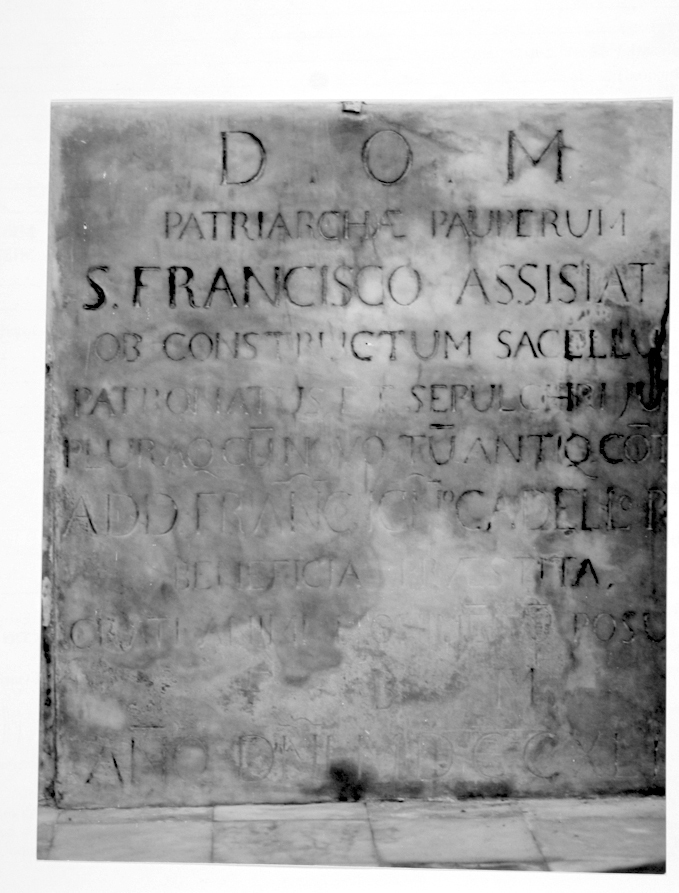 D . O . M
PATRIARCHÆ PAUPERUM
S. FRANCISCO ASSISIAT
OB CONSTRUCTUM SACELLU
PATRONATUS ET SEPULCHRI JU
PLURAQ CŪ NOVO TŪ ANTIQ
ADD FRANC
BENEFICIA PRÆSTITA,
GRATI ANIMI POSU
AÑO DÑI MDCCXLI